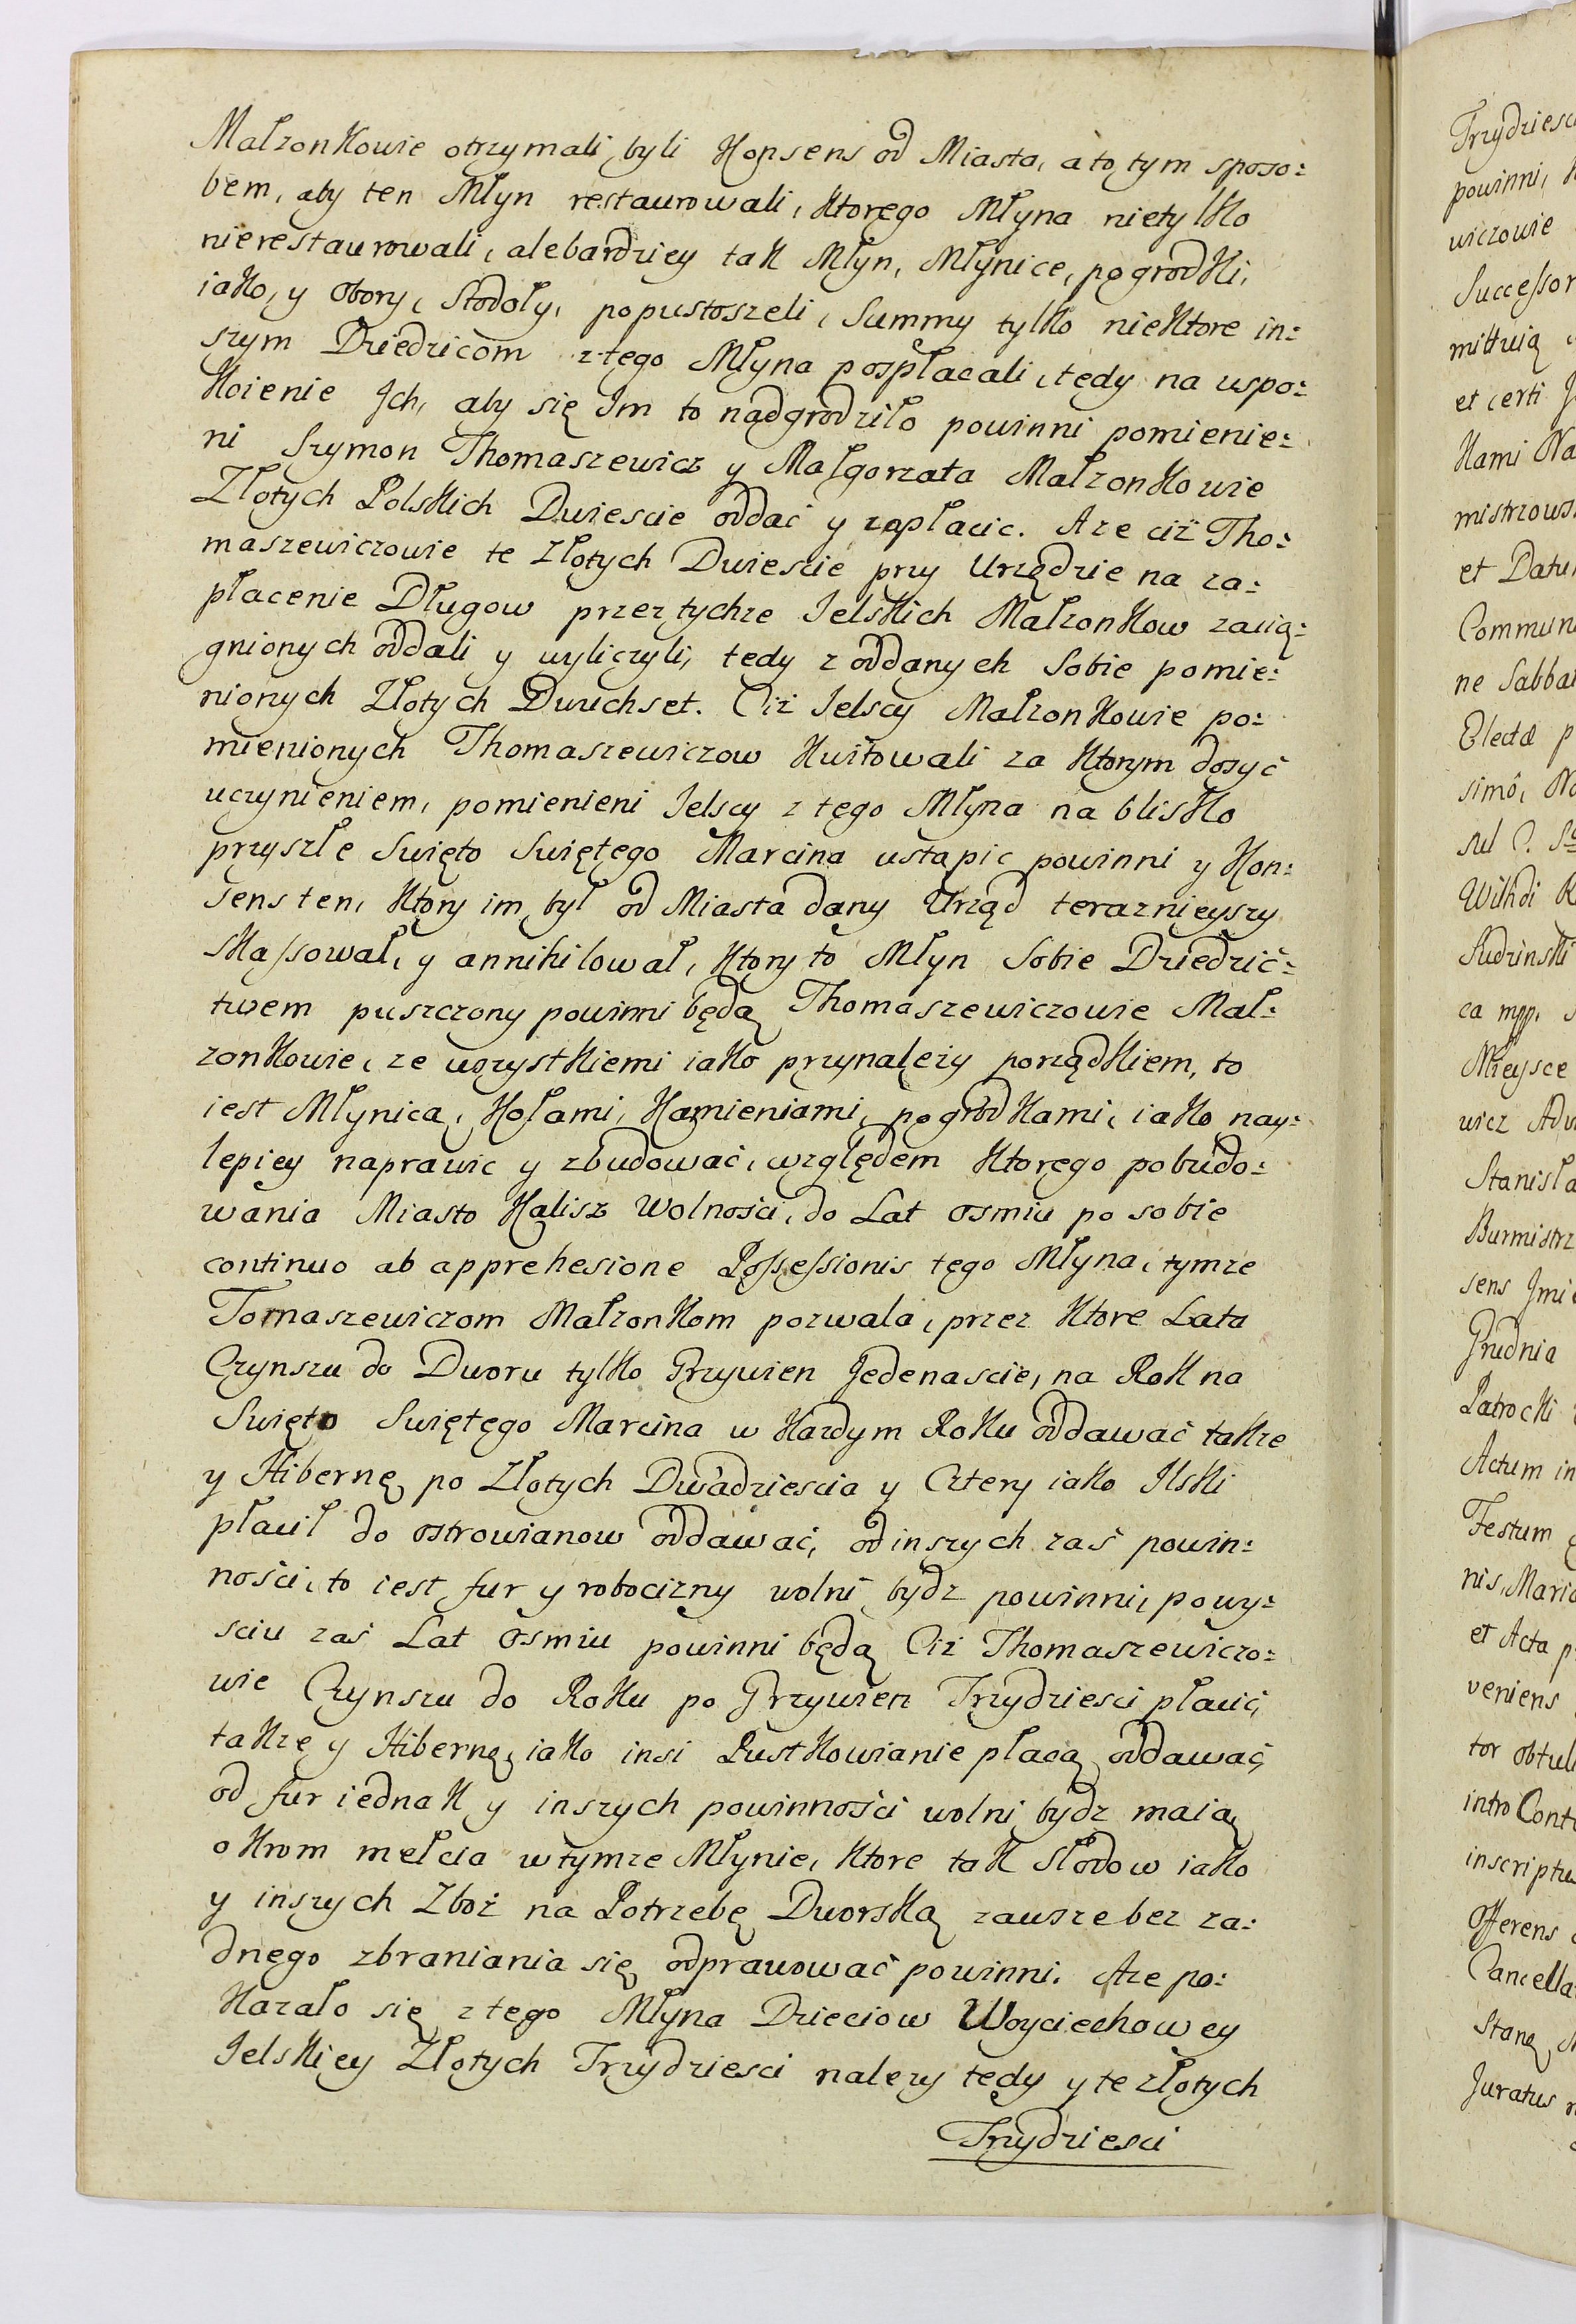 Małzonkowie otrzymali byli Konsens od Miasta, a to tym sposo:
bem, aby ten Młyn restaurowali, ktorego Młyna nietylko
nierestaurowali, alebardziey tak Młyn, Młynice, pogrodki,
iako, y Obory, Stodoły, popustoszeli, Summy tylko niektore in:
szym Dziedzicom z tego Młyna pospłacali, tedy na uspo:
koienie Jch, aby się Jm to nadgrodziło powinni pomienie:
ni Szymon Thomaszewicz y Małgorzata Małzonkowie
Złotych Polskich Dwiescie oddać y zapłacic. Aze ciż Tho:
maszewiczowie te Złotych Dwiescie przy Urzędzie na za:
płacenie Długow przez tychze Jelskich Małzonkow zacią:
gnionych oddali y wyliczyli, tedy z oddanych Sobie pomie:
nionych Złotych Dwuchset. Ciż Jelscy Małzonkowie po:
mienionych Thomaszewiczow kwitowali za ktorym dosyć
uczynieniem, pomienieni Jelscy z tego Młyna na blisko
przyszłe Swięto Swiętego Marcina ustąpic powinni y Kon:
sens ten, ktory im był od Miasta dany Urząd teraznieyszy
skassował, y annihilował, ktory to Młyn Sobie Dziedzić:
twem puszczony powinni będą Thomaszewiczowie Mał:
zonkowie, ze wszystkiemi iako przynależy porządkiem, to
iest Młynicą, Kołami, Kamieniami, pogródkami, iako nay:
lepiey naprawic y zbudować, względem ktorego pobudo:
wania Miasto Kalisz Wolności, do Lat osmiu po sobie
continuo ab apprehesione Possessionis tego Młyna, tymze
Tomaszewiczom Małzonkom pozwala, przez ktore Lata
Czynszu do Dworu tylko Grzywien Jedenascie, na Rok na
Swięto Swiętego Marcina w Kazdym Roku oddawać takze
y Hibernę po Złotych Dwadziescia y Cztery iako Jlski
płacił do ostrowianow oddawać, od inszych zaś powin:
ności, to iest fur y robocizny wolni bydz powinni, po wy:
sciu zaś Lat Osmiu powinni będą Ciż Thomaszewiczo:
wie Czynszu do Roku po Grzywien Trzydziesci płacić,
takze y Hibernę, iako insi Pustkowianie płacą oddawać,
od fur iednak y inszych powinności wolni bydz maią
okrom mełcia w tymze Młynie, ktore tak Słodow iako
y inszych Zboż na Potrzebę Dworską zawsze bez za:
dnego zbraniania się odprawować powinni. Aze po:
kazało się z tego Młyna Dzieciow Woyciechowey
Jelskiey Złotych Trzydziesci nalezy tedy y te złotych
Trzydziesci
Trzydziesci
powinni,
wiczowie
Successor
mittuią
et certi
kami Na
mistrzows
et Datu
Commun
ne Sabba
Electæ p
simô,
Sudzinski
ca mpp.
Mieysce
wicz Adv
Stanisła
Burmistrz
sens Jmi
Grudnia
Patrocki
Actum in
Festum
nis, Mari
et Acta p
veniens
tor obtul
intro Cont
inscriptu
Offerens
Cancella
Stanę
Juratus